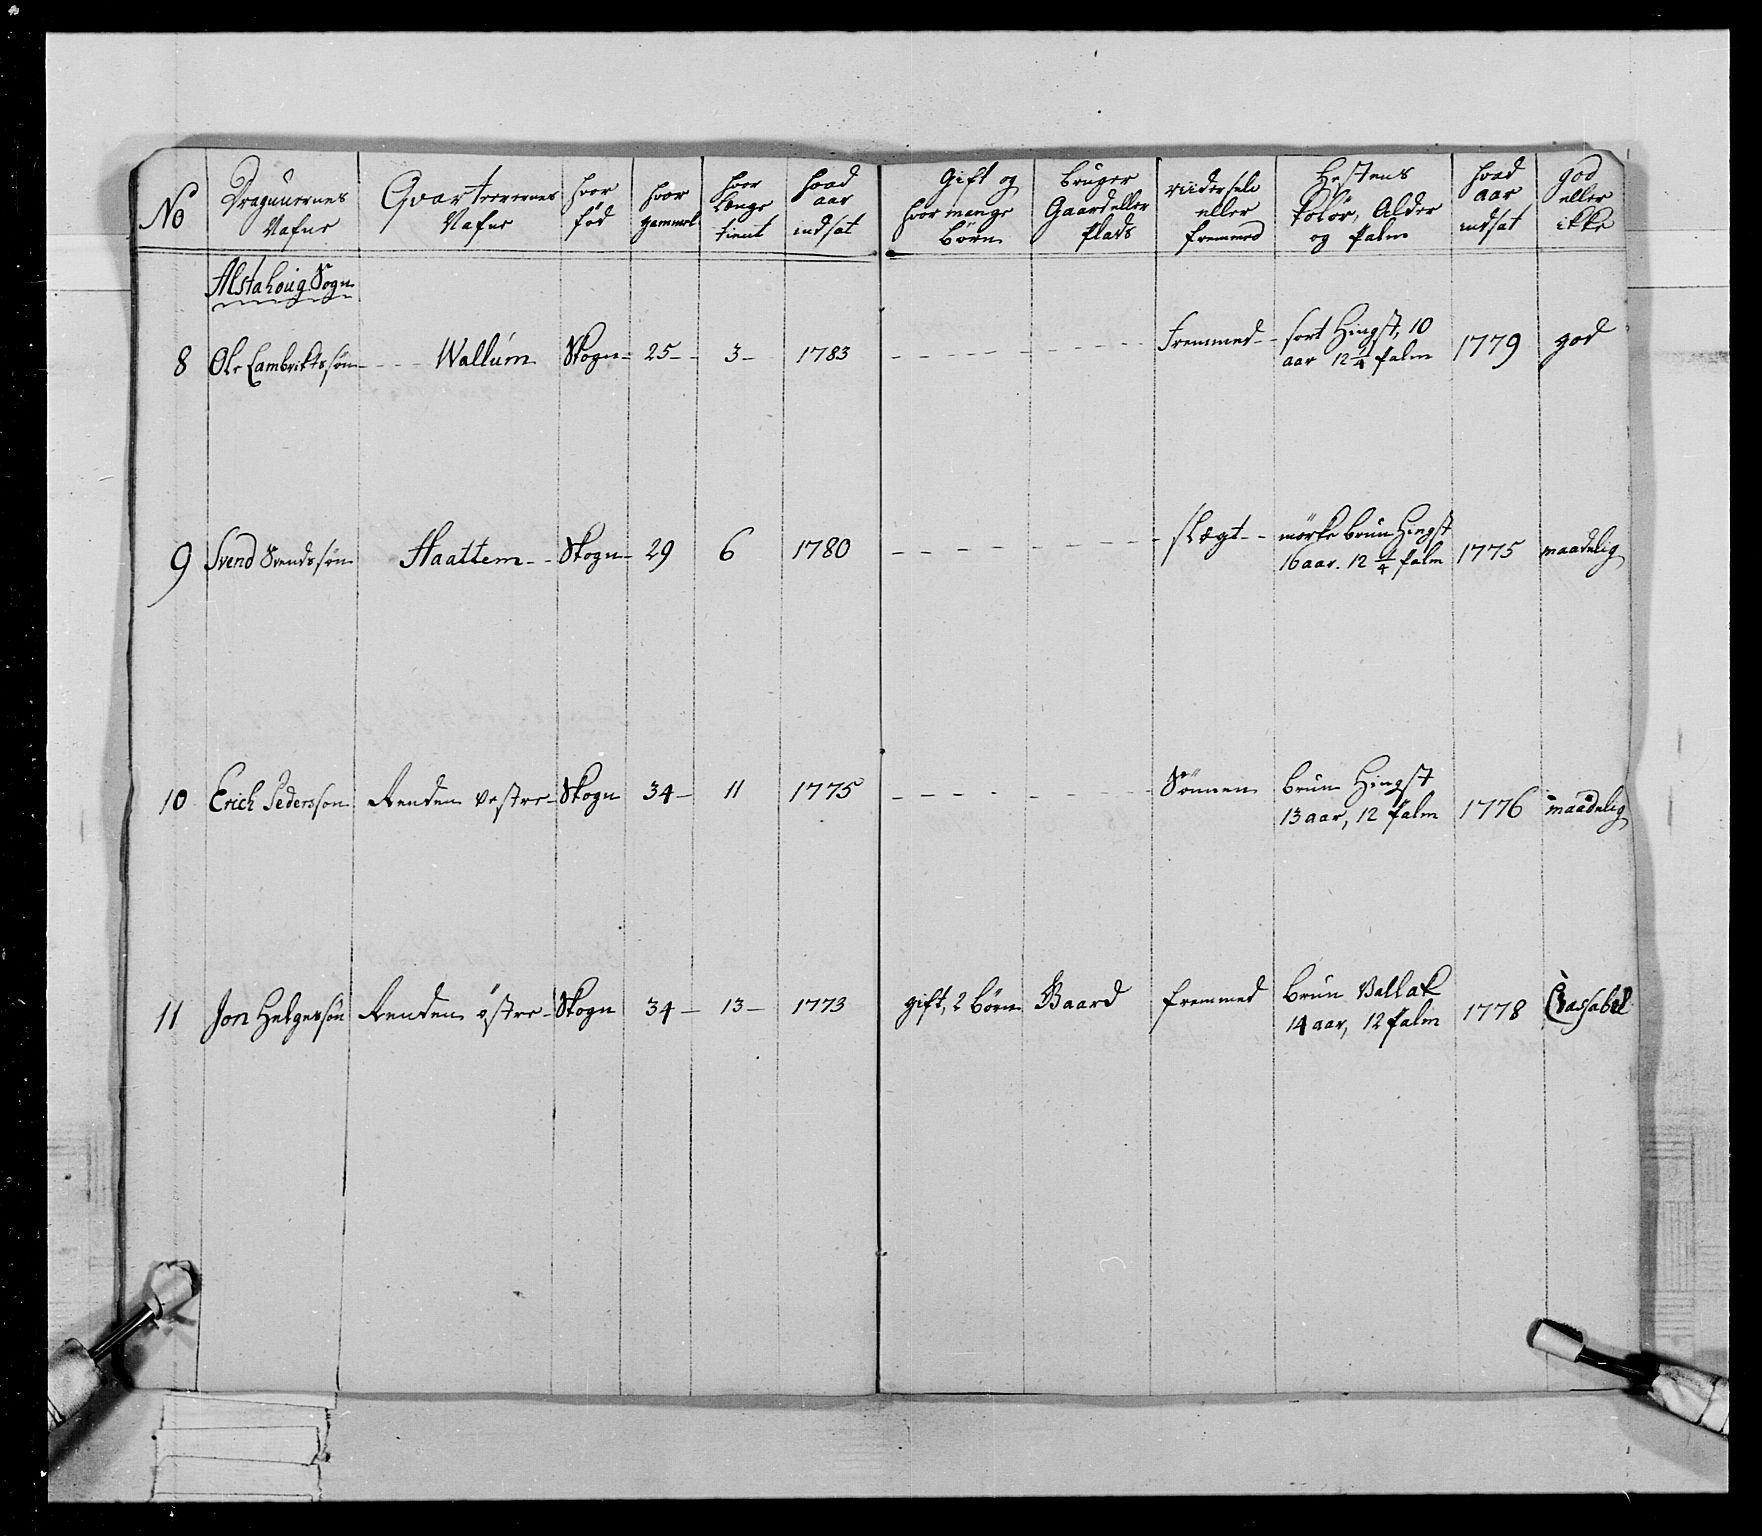 No
Dragunernes Nafne
Qvarteerernes Nafne
hvor fød
hvor gammel
hvor Længe tient
hvad aar indsat
Gift og hvor mange Børn
bruger Gaard eller Plads
eller fremmed
Hestens Kolør, Alder og Palm
hvad aar indsat
god eller ikke
Alstahoug Sogn
8 Ole Lambriktssøn Wallum Skogn 25 3 1783 Fremmed sort Hingst, 10 aar 12 1/4 Palm 1779 god
9 Svend Svendssøn Haattem Skogn 29 6 1780 slægt mørke brun Hingst 16 aar. 12 1/4 Palm 1775 maadelig
10 Erich Pedersson Renden vestre Skogn 34 11 1775 Sönnen brun Hingst 13 aar, 12 Palm 1776 maadelig
11 Jon Helgessøn Renden østre Skogn 34 13 1773 gift, 2 børn Gaard fremmed brun Vallak 14 aar, 12 Palm 1778 Passabel